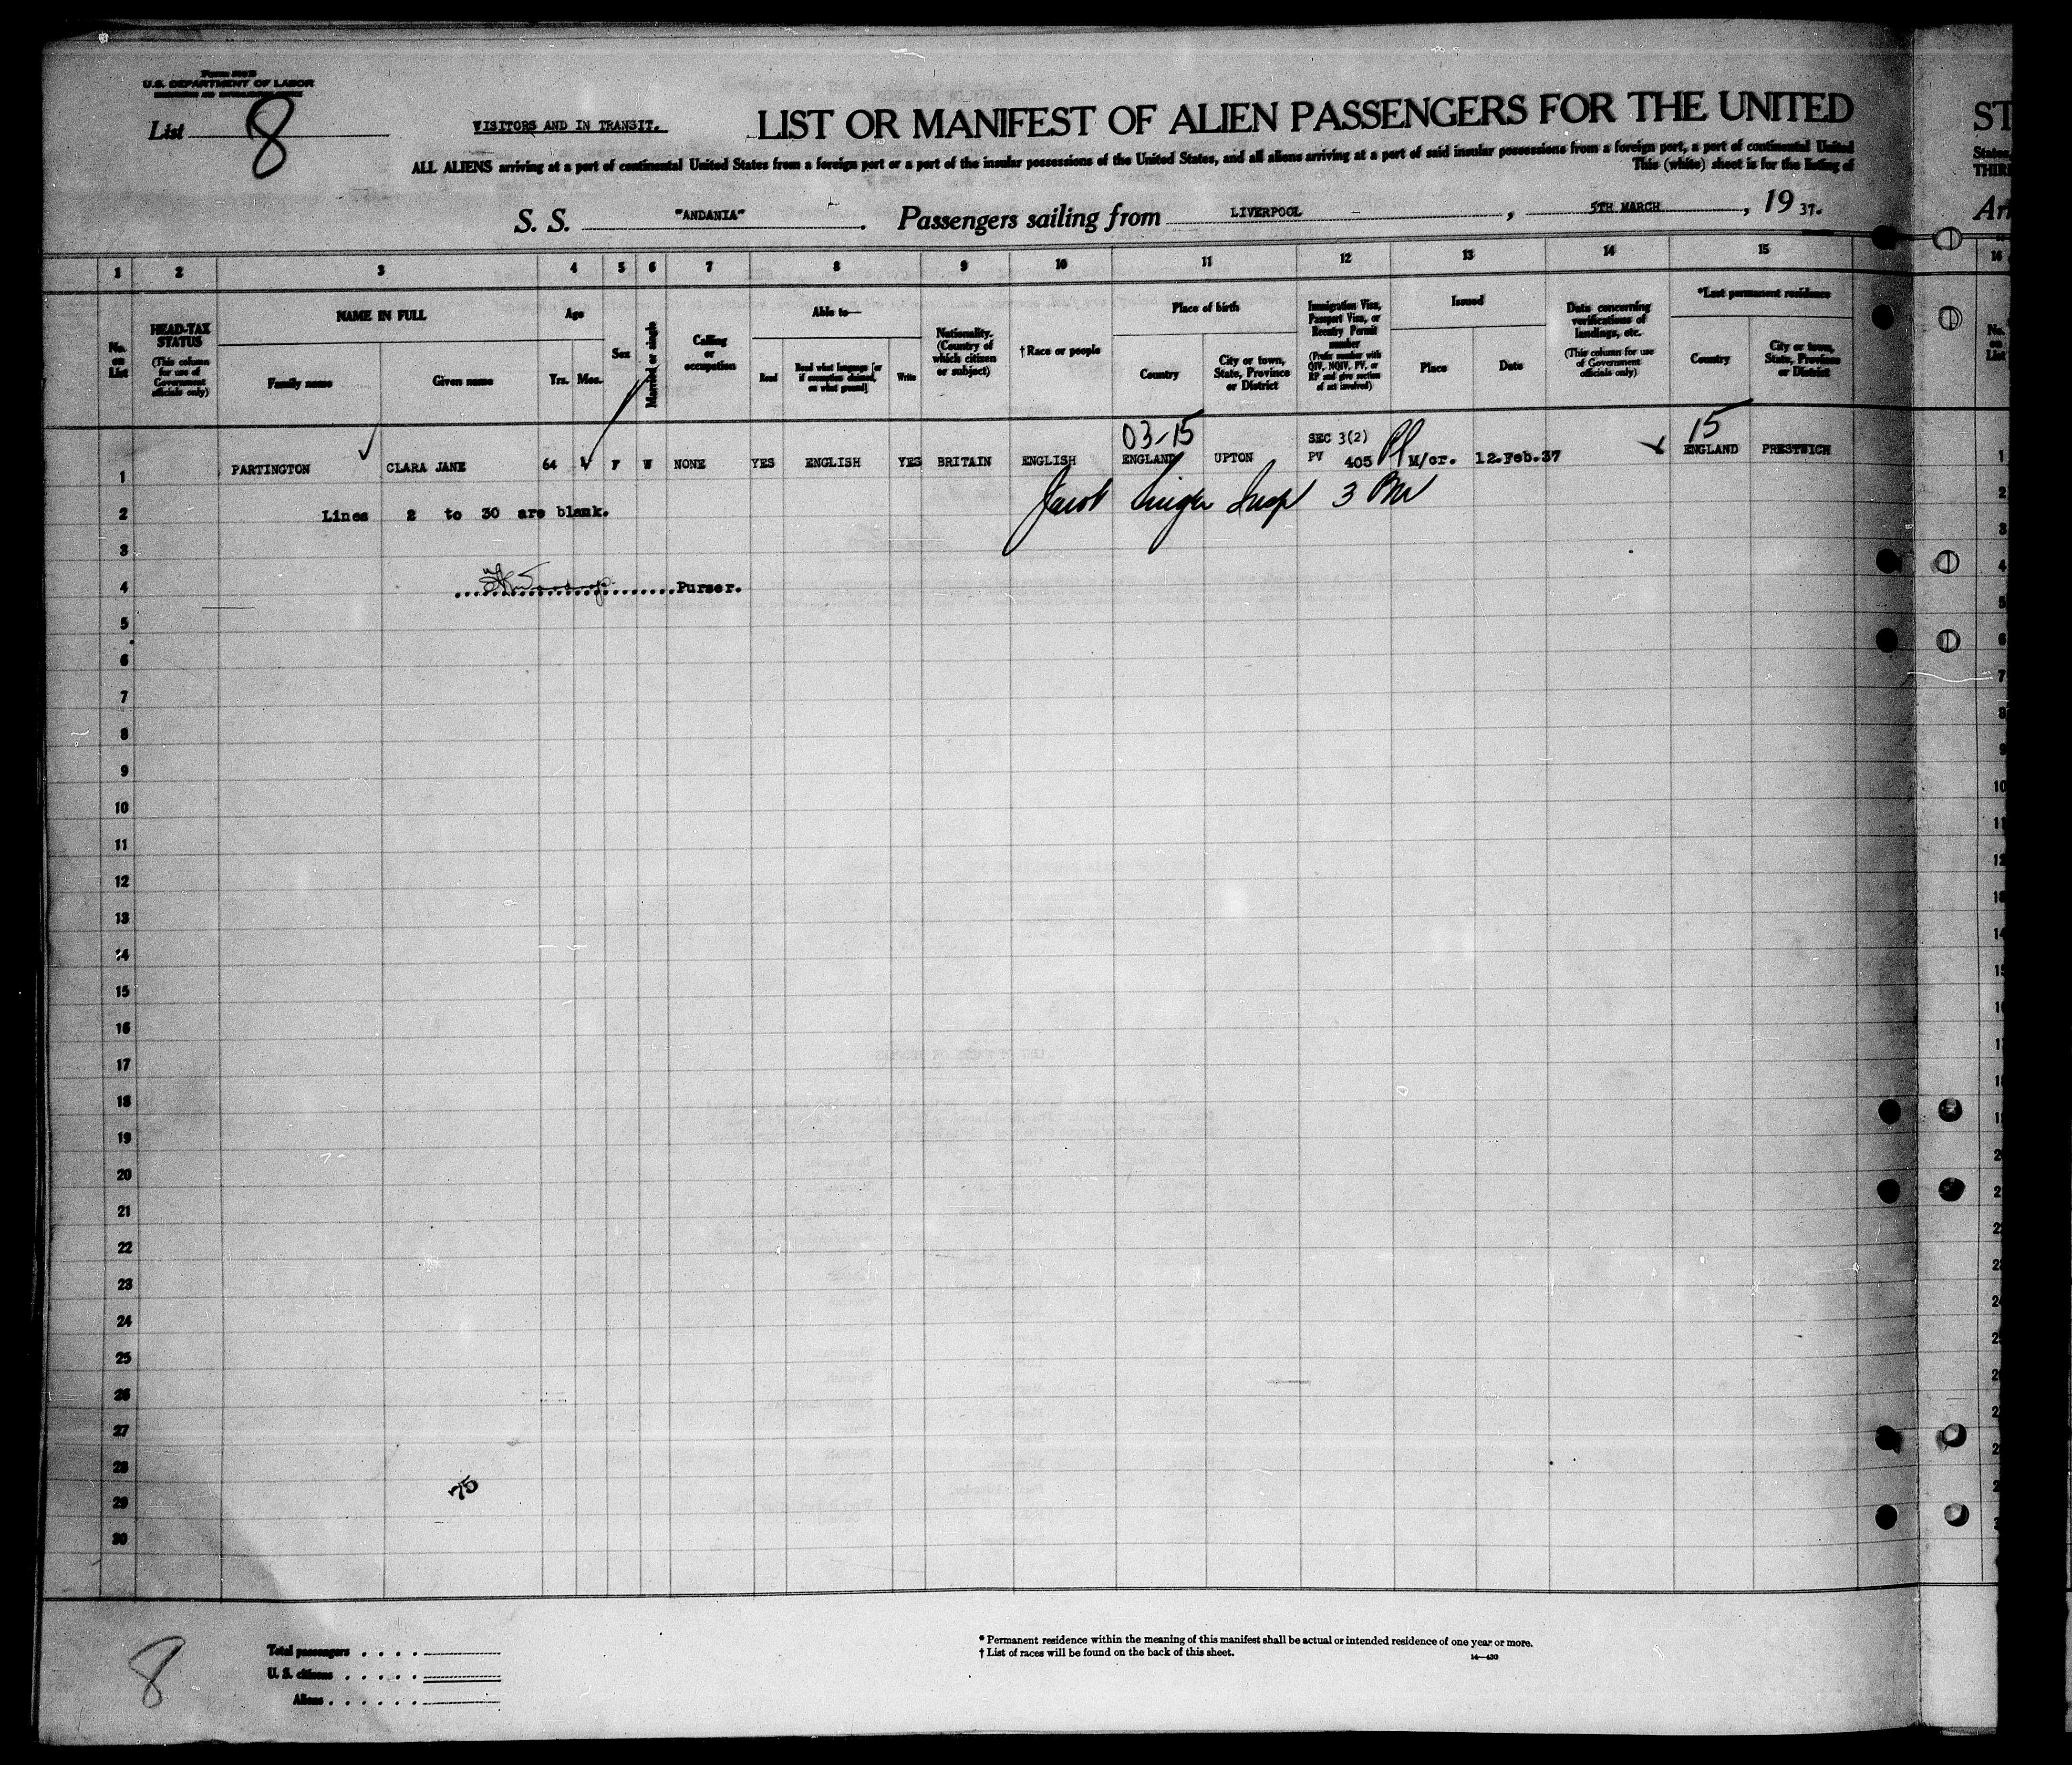 U.S. DEPARTMENT OF LABOR
List 8
VISITORS AND IN TRANSIT.
LIST OR MANIFEST OF ALIEN PASSENGERS FOR THE UNITED
ST
ALL ALIENS arriving at a port of continental United States from a foreign port or a port of the insular possessions of the United States, and all aliens arriving at a port of said insular possessions from a foreign port, a port of continental United
States,
This (white) sheet is for the listing of
THIR
S. S. "ANDANIA". Passengers sailing from LIVERPOOL, 5TH MARCH, 19 37.
Arr
1 2 3 4 5 6 7 8 9 10 11 12 13 14 15 16
No. on List
HEAD-TAX STATUS
(This column for use of Government officials only)
NAME IN FULL
Family name
Given name
Age
Yrs. Mos.
Sex
Married or single
Calling or occupation
Able to—
Read
Read what language [or if exemption claimed, on what ground]
Write
Nationality. (Country of which citizen or subject)
†Race or people
Place of birth
Country
City or town, State, Province or District
Immigration Visa, Passport Visa, or Reentry Permit number
(Prefix number with QIV, NQIV, PV, or RP and give section of act involved)
Issued
Place
Date
Data concerning verifications of landings, etc.
(This column for use of Government officials only)
*Last permanent residence
Country
City or town, State, Province or District
No. on List
03-15
SEC 3(2)
15
1 PARTINGTON CLARA JANE 64 F W NONE YES ENGLISH YES BRITAIN ENGLISH ENGLAND UPTON PV 405 M/cr. 12.Feb.37 ENGLAND PRESTWICH 1
2 Lines 2 to 30 are blank. 2
3 3
4 Purser. 4
5 5
6 6
7 7
8 8
9 9
10 10
11 11
12 12
13 13
14 14
15 15
16
17
18
19
20
21
22
23
24
25
26
27
28
75
29
30
8
Total passengers . . . .
U. S. citizens . . . . .
Aliens . . . . . .
* Permanent residence within the meaning of this manifest shall be actual or intended residence of one year or more.
† List of races will be found on the back of this sheet.
14—430